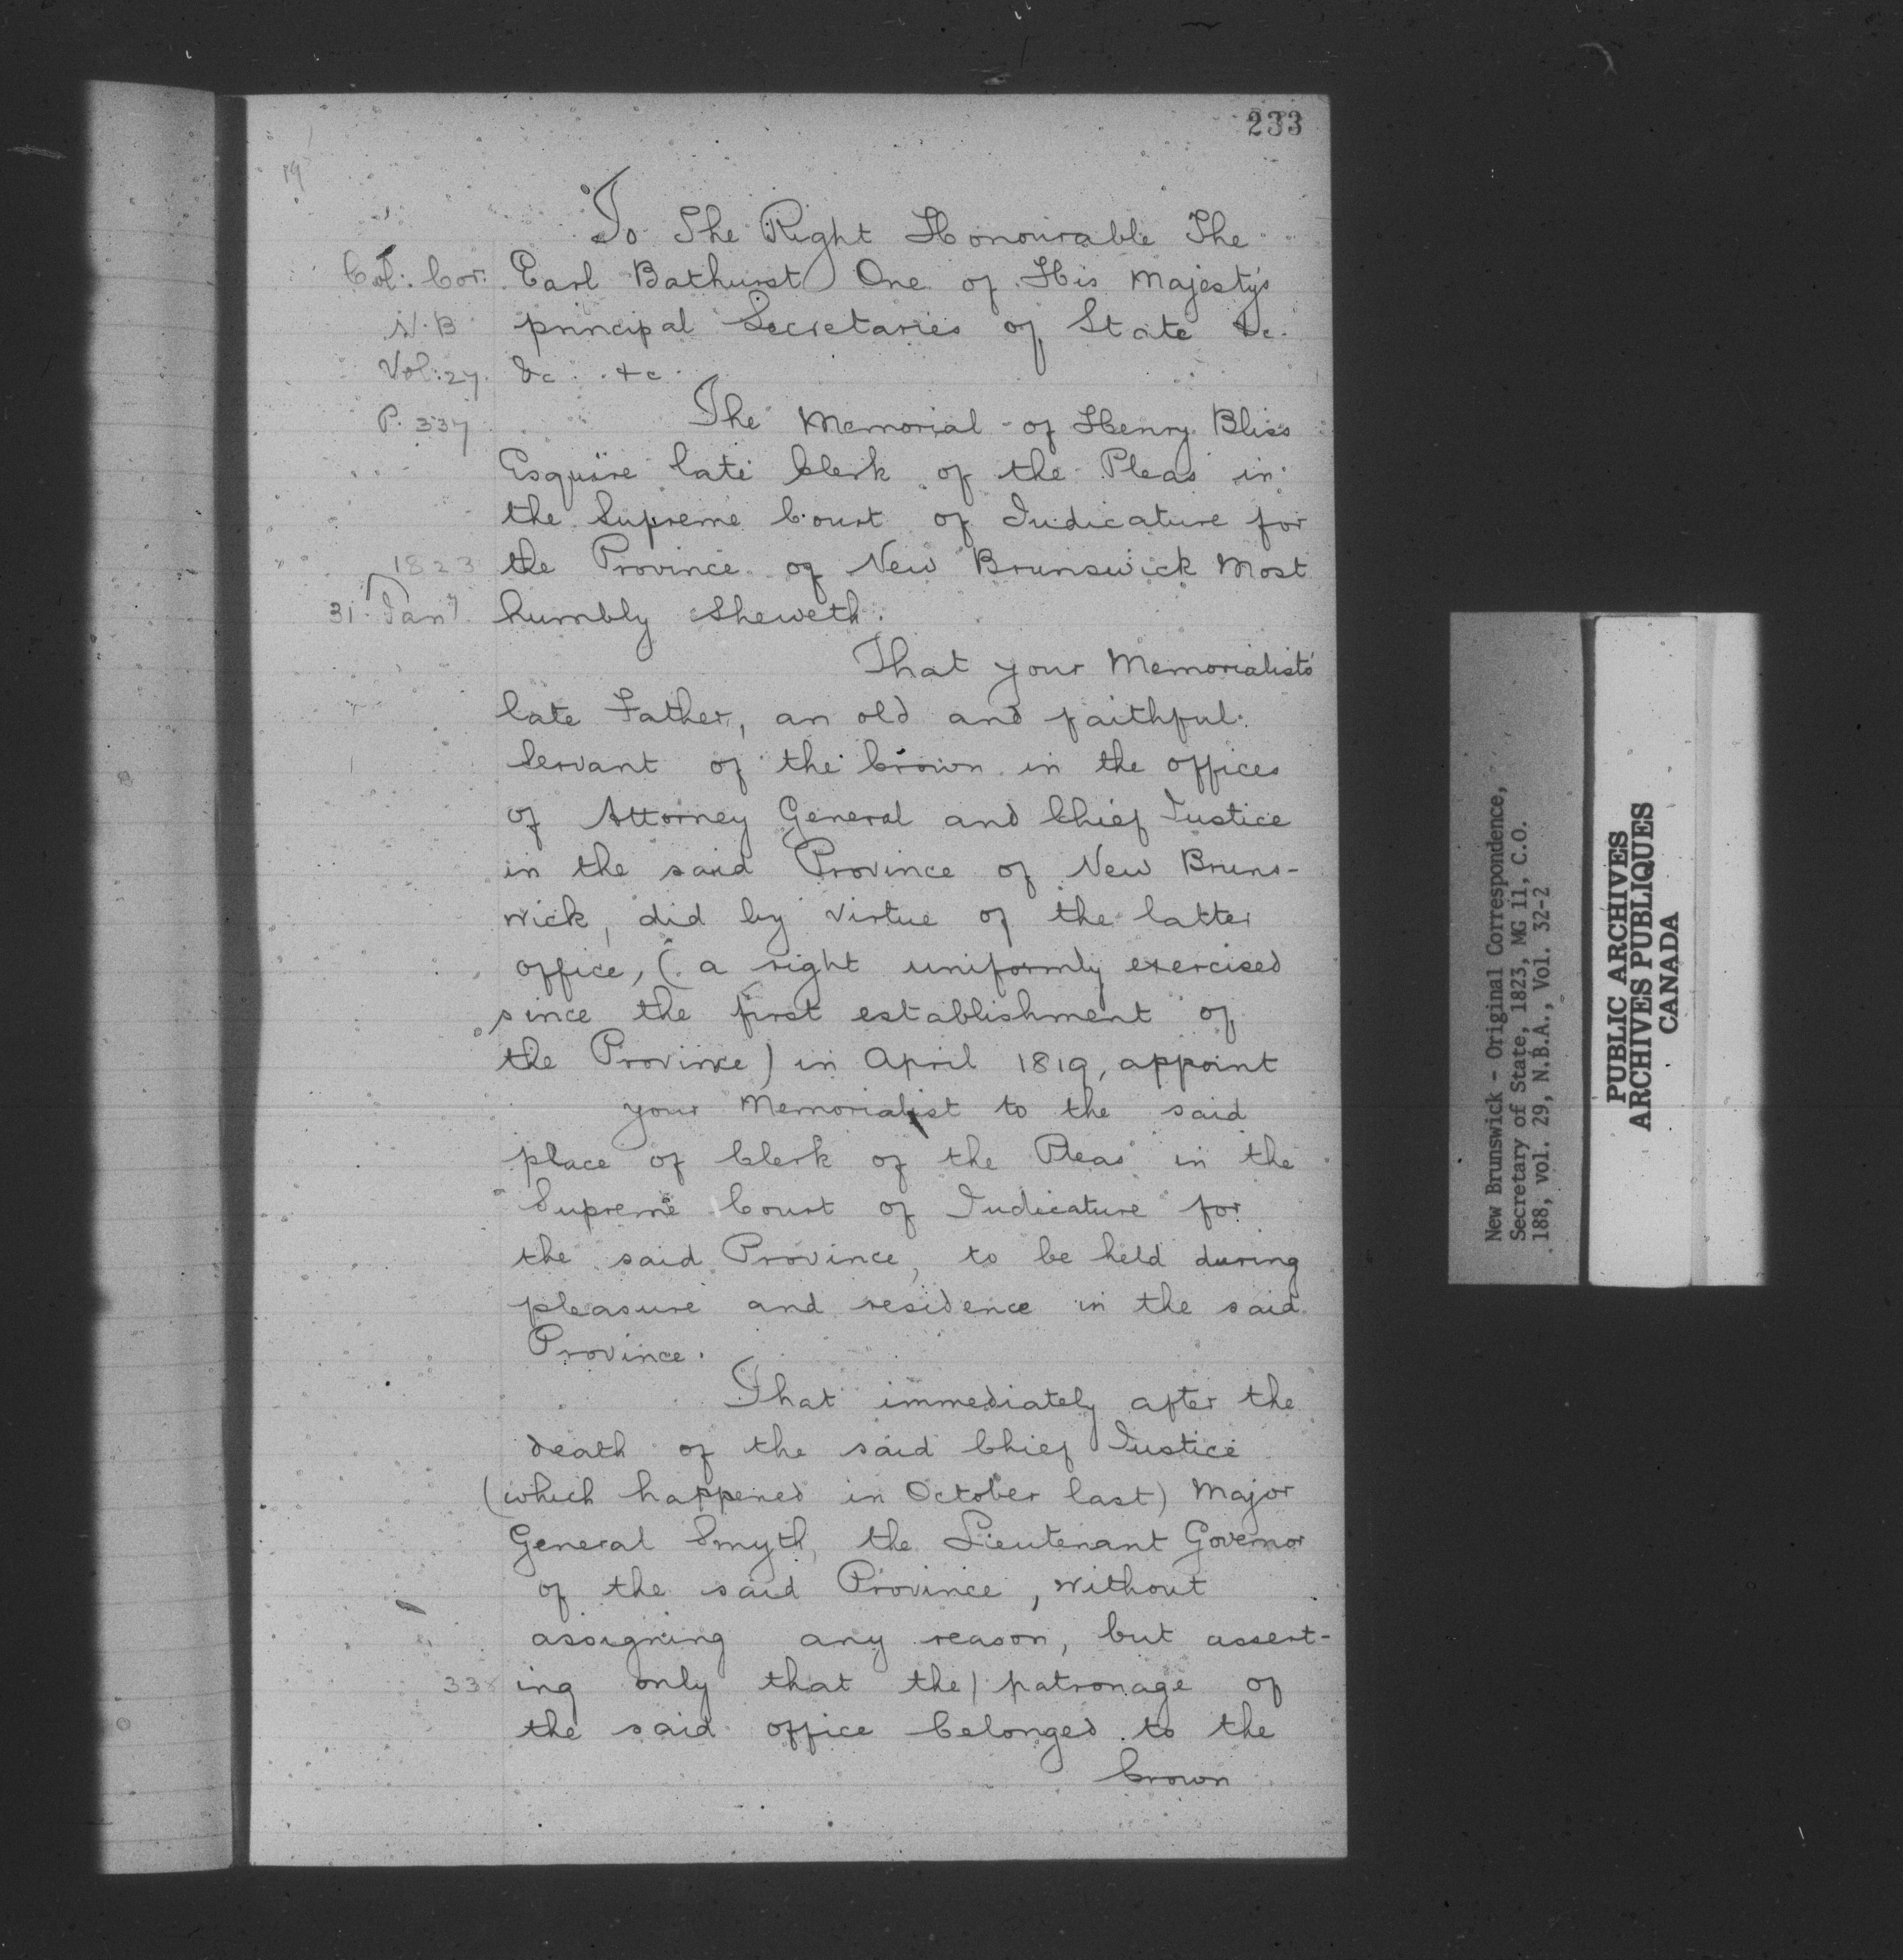 233
To The Right Honourable The
Col. Cor. Earl Bathurst One of His Majesty's
N.B principal Secretaries of State &c.
Vol. 27. &c. &c.
P. 337 The Memorial of Henry Bliss
Esquire late Clerk of the Pleas in
the Supreme Court of Judicature for
1823 the Province of New Brunswick Most
31. Jany. humbly Sheweth.
That your Memorialists'
late Father, an old and faithful
Servant of the Crown in the offices
of Attorney General and Chief Justice
in the said Province of New Bruns-
wick, did by virtue of the latter
office, (a right uniformly exercised
since the first establishment of
the Province) in April 1819, appoint
your Memorialist to the said
place of Clerk of the Pleas in the
Supreme Court of Judicature for
the said Province, to be held during
pleasure and residence in the said
Province.
That immediately after the
death of the said Chief Justice
(which happened in October last) Major
General Smyth, the Lieutenant Governor
of the said Province, without
assigning any reason, but assert-
338 ing only that the/ patronage of
the said office belonged to the
Crown
New Brunswick - Original Correspondence,
Secretary of State, 1823, MG 11, C.O.
188, vol. 29, N.B.A., Vol. 32-2
PUBLIC ARCHIVES
ARCHIVES PUBLIQUES
CANADA